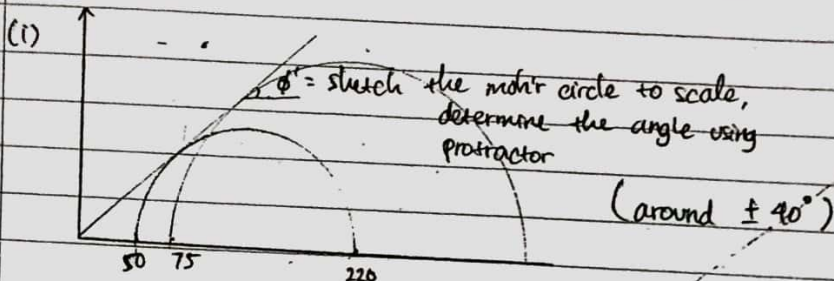 (i)
ϕ' = sketch the mohr circle to scale,
determine the angle using
protractor
(around ± 40°)
50 75 220